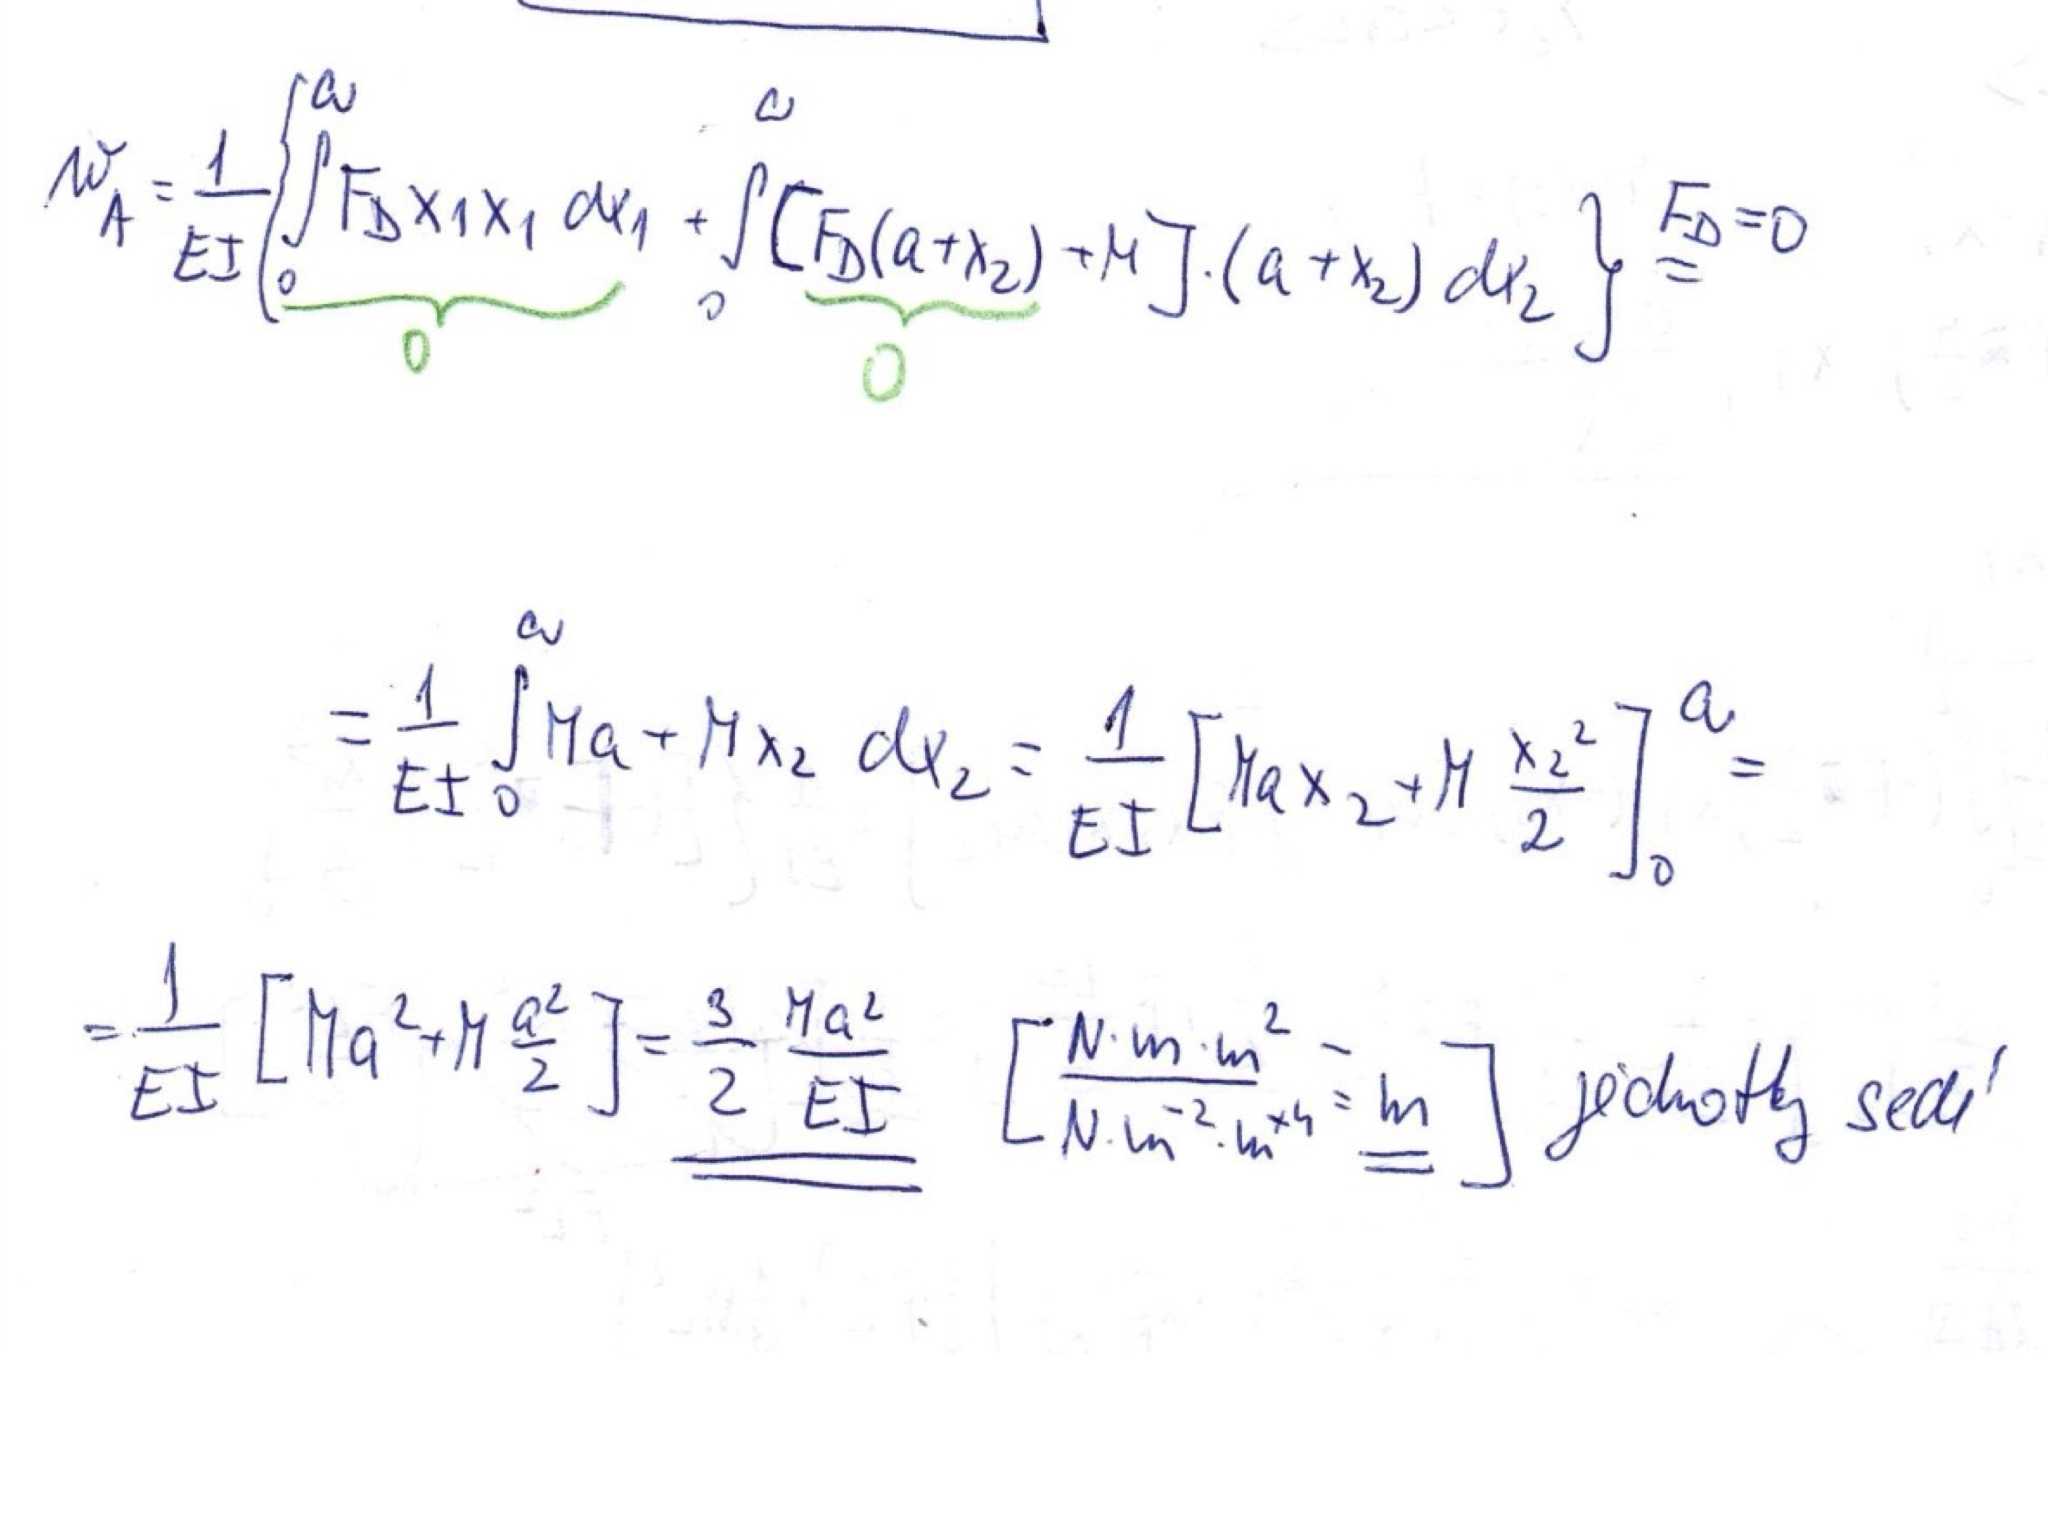 w_A = 1/EI { ∫₀ᵃ F_D x₁ x₁ dx₁ + ∫₀ᵃ [F_D(a+x₂) + M]·(a+x₂) dx₂ } F_D=0 =
0 0
= 1/EI ∫₀ᵃ Ma + Mx₂ dx₂ = 1/EI [Max₂ + M x₂²/2]₀ᵃ =
= 1/EI [Ma² + M a²/2] = 3/2 Ma²/EI [N·m·m²/N·m⁻²·m⁺⁴ = m] jednotky sedí